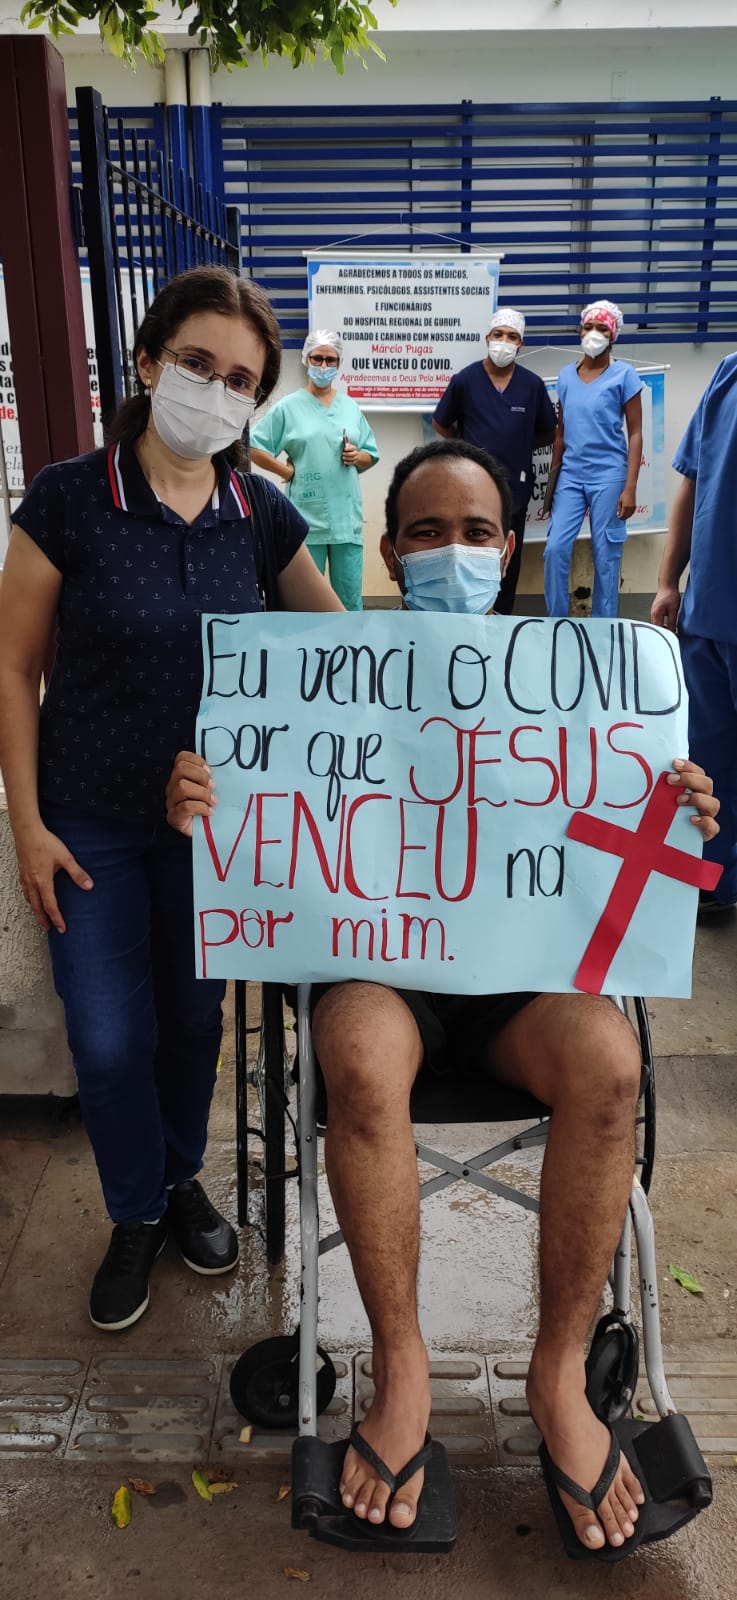 AGRADECEMOS A TODOS OS MÉDICOS,
ENFERMEIROS, PSICÓLOGOS, ASSISTENTES SOCIAIS
E FUNCIONÁRIOS
DO HOSPITAL REGIONAL DE GURUPI.
CUIDADO E CARINHO COM NOSSO AMADO
Márcio Pugas
QUE VENCEU O COVID.
Agradecemos a Deus Pelo
HRG
Eu venci o COVID
por que JESUS
VENCEU na
por mim.